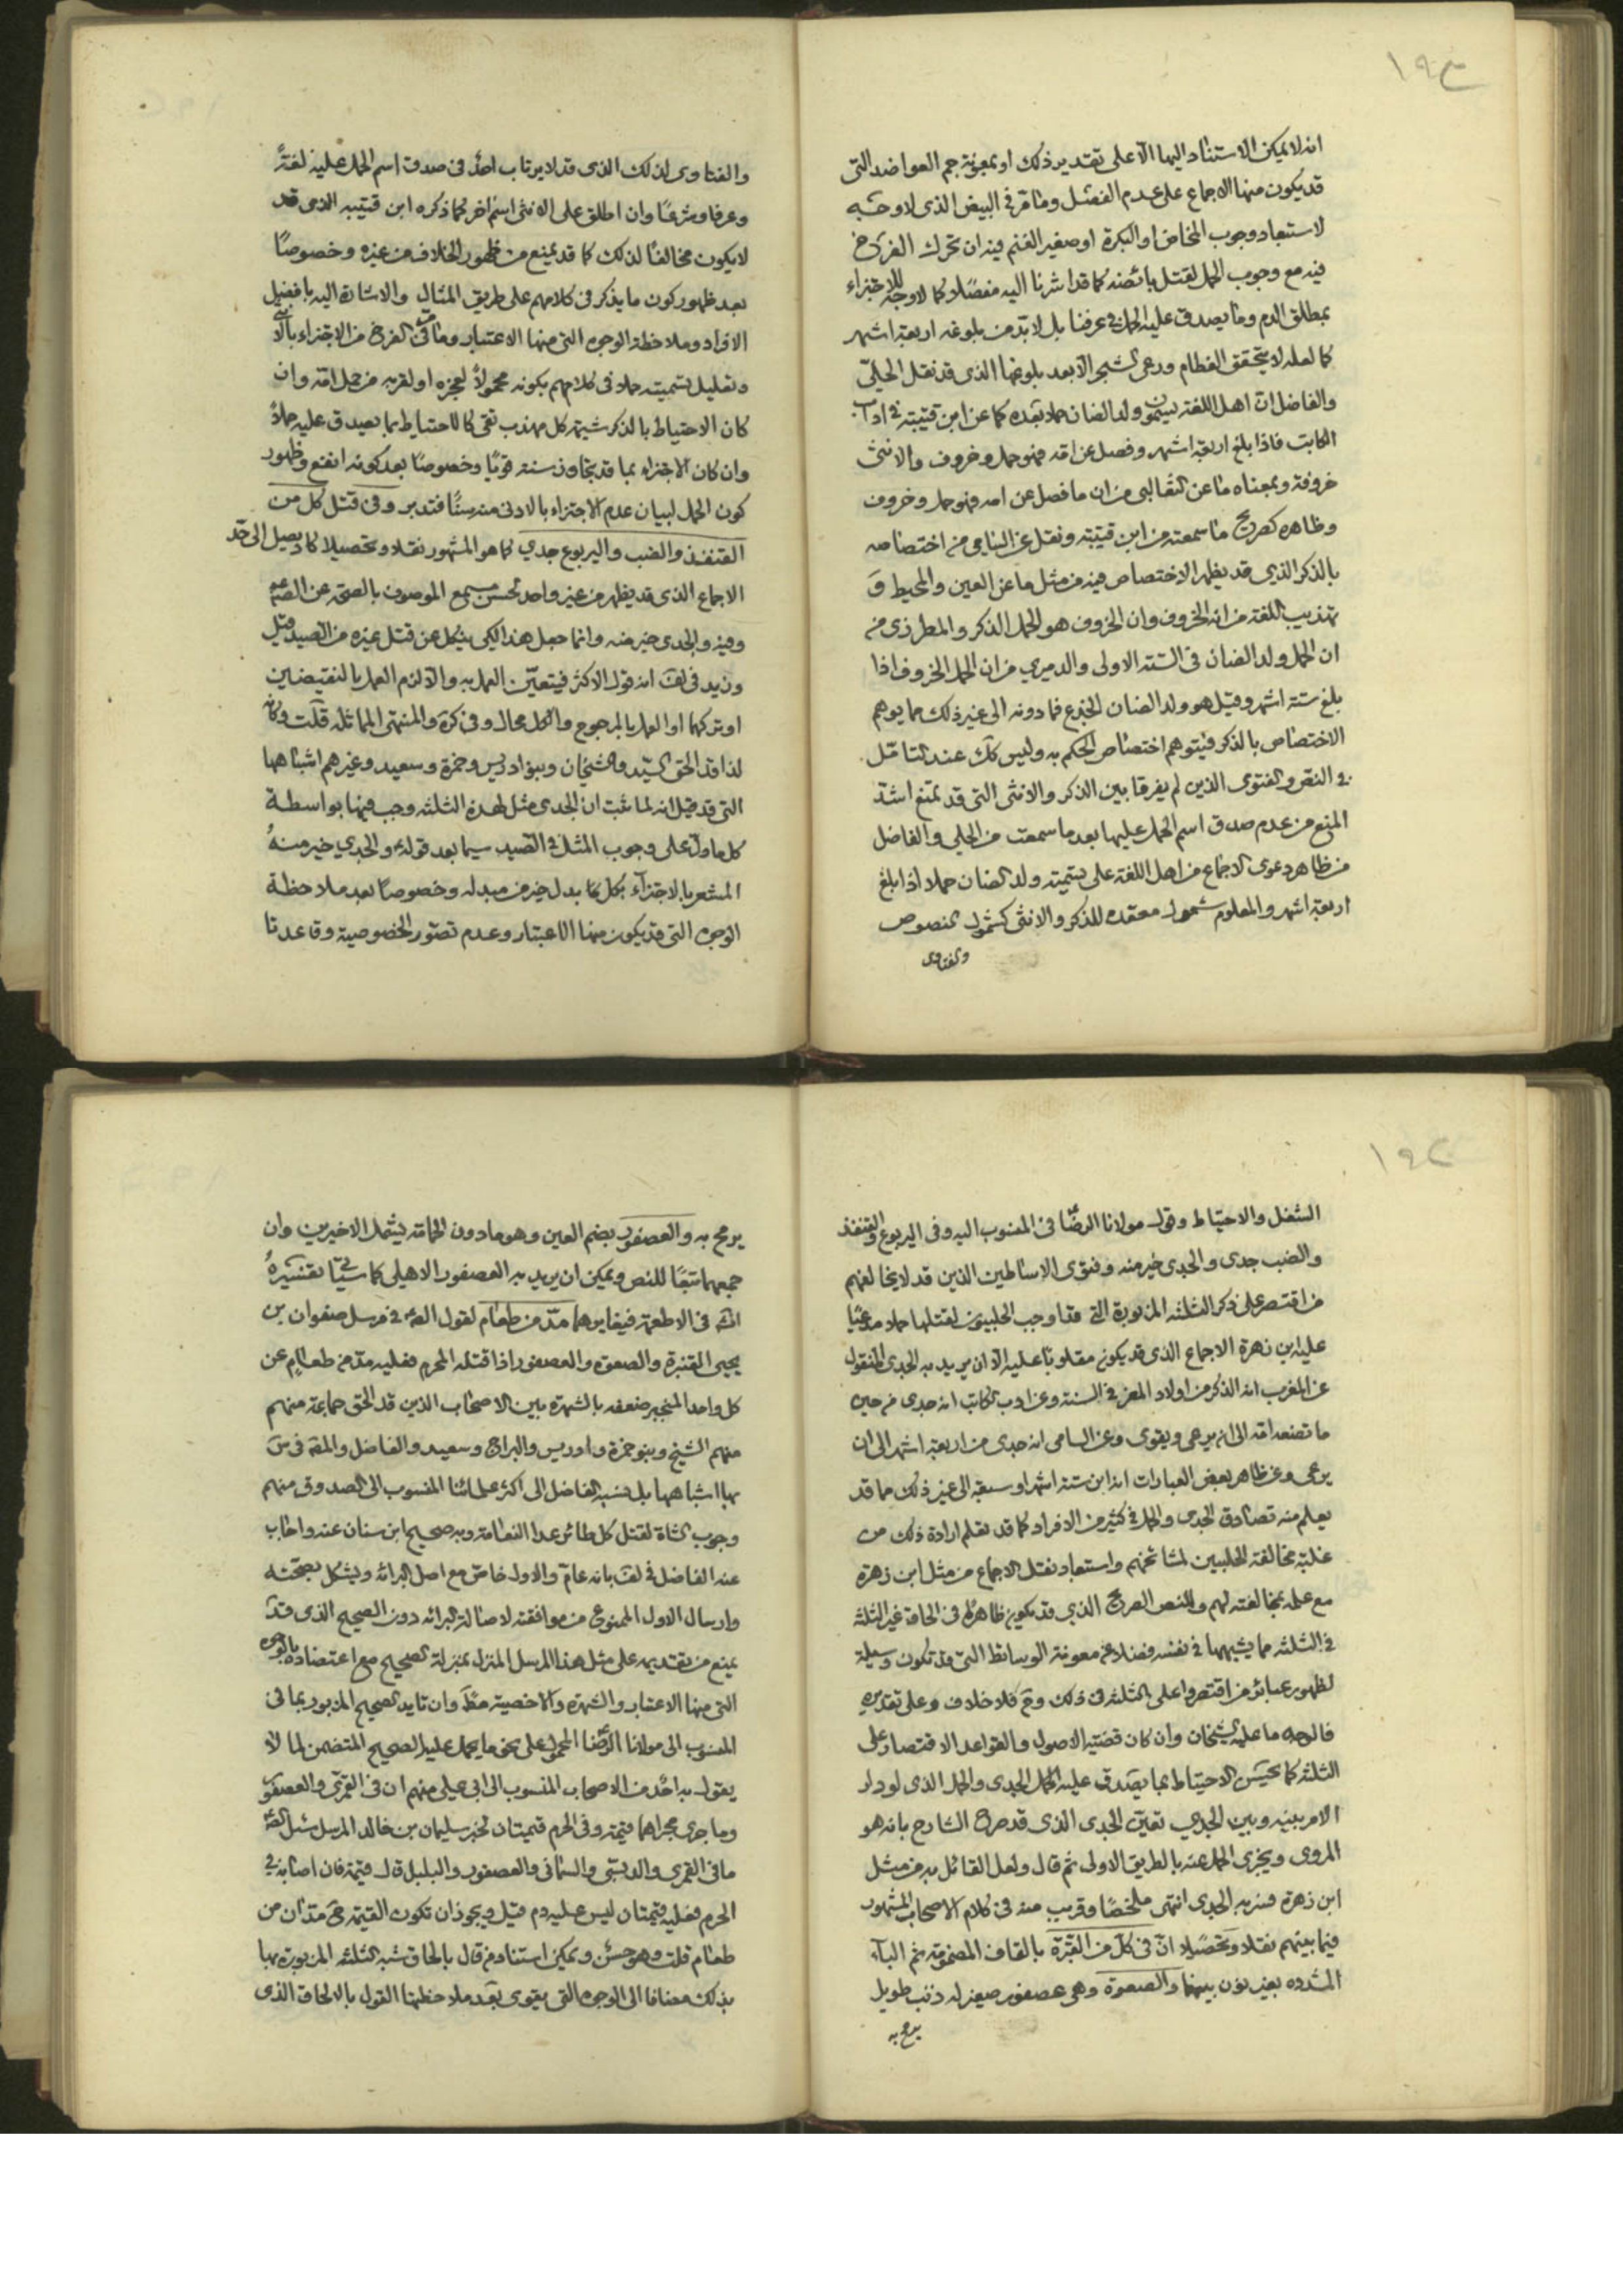 ١٩٣
انه لا يمكن الاستناد اليها الا على تقدير ذلك او بمعونة جم العواضد التى
قد يكون منها الاجماع على عدم الفصل وما مر فى البيض الذى لا وجه
لاستبعاد وجوب المخاض او البكرة او صغير الغنم فيه ان تحرك الفرخ
فيه مع وجوب الحمل لقتل بائضه كما قد اشرنا اليه مفصلا كما لا وجه للاجتزاء
بمطلق الدم وما يصدق عليه الحمل فى عرفنا بل لا بد من بلوغه اربعة اشهر
كما لعله لا يتحقق الفطام ورعى الشجر الا بعد بلوغها الذى قد نقل الحلى
والفاضل ان اهل اللغة يسمون ولد الضان حملا بعده كما عن ابن قتيبة فى ادب
الكاتب فاذا بلغ اربعة اشهر وفصل عن امه فهو حمل وخروف والانثى
خروفة وبمعناه ما عن الثعالبى من ان ما فصل عن امه فهو حمل وخروف
وظاهره كصريح ما سمعته من ابن قتيبة ونقل عن السامى من اختصاصه
بالذكر الذى قد يظهر الاختصاص فيه من مثل ما عن العين والمحيط و
تهذيب اللغة من انه الخروف وان الخروف هو الحمل الذكر والمطرزى من
ان الحمل ولد الضان فى السنة الاولى والدميرى من ان الحمل الخروف اذا
بلغ ستة اشهر وقيل هو ولد الضان الجذع فما دونه الى غير ذلك مما يوهم
الاختصاص بالذكر فيتوهم اختصاص الحكم به وليس كك عند التامل
فى النص والفتوى الذين لم يفرقا بين الذكر والانثى التى قد تمنع اشد
المنع من عدم صدق اسم الحمل عليها بعد ما سمعت من الحلى والفاضل
من ظاهر دعوى الاجماع من اهل اللغة على تسمية ولد الضان حملا اذا بلغ
اربعة اشهر والمعلوم شمول معقده للذكر والانثى كشمول النصوص
والفتاوى
والفتاوى لذلك الذى قد لا يرتاب احد فى صدق اسم الحمل عليه لغة
وعرفا وشرعا وان اطلق على الانثى اسم اخر كما ذكره ابن قتيبه الذى قد
لا يكون مخالفا لذلك كما قد يمنع من ظهور الخلاف من غيره وخصوصا
بعد ظهور كون ما يذكر فى كلامهم على طريق المثال والاشارة اليه بافضل
الافراد وملاحظة الوجوه التى منها الاعتبار وما مر فى الفرخ من الاجتزاء بالانثى
وتعليل تسميته حملا فى كلامهم بكونه محمولا لعجزه او لقربه من حمل امه وان
كان الاحتياط بالذكر شيمة كل مهذب تقى كالاحتياط بما يصدق عليه حملا
وان كان الاجتزاء بما قد يتجاوز سنته قويا وخصوصا بعد كونه انفع وظهور
كون الحمل لبيان عدم الاجتزاء بالادنى منه سنا فتدبر وفى قتل كل من
القنفذ والضب واليربوع جدي كما هو المشهور نقلا وتحصيلا كاد يصل الى حد
الاجماع الذى قد يظهر من غير واحد لحسن مسمع الموصوف بالصحة عن الصم
وفيه والجدى خير منه وانما جعل هذا لكى ينكل عن قتل غيره من الصيد قيل
وزيد فى لف انه قول الاكثر فيتعين العمل به والا لزم العمل بالنقيضين
او تركهما او العمل بالمرجوح والكل محال وفى كره والمنتهى المماثلة قلت وكان
لذا قد الحق السيد والشيخان وبنو ادريس وحمزة وسعيد وغيرهم اشباهها
التى قد قيل انه لما ثبت ان الجدى مثل لهذه الثلثه وجب فيها بواسطة
كل ما دل على وجوب المثل فى الصيد سيما بعد قوله ع والجدي خير منه
المشعر بالاجتزاء بكل ما بدل خير من مبدله وخصوصا بعد ملاحظة
الوجوه التى قد يكون منها الاعتبار وعدم تصور الخصوصية وقاعدتا
١٩٤
الشغل والاحتياط وقول مولانا الرضا فى المنسوب اليه وفى اليربوع والقنفذ
والضب جدى والجدى خير منه وفتوى الاساطين الذين قد لا يخالفهم
من اقتصر على ذكر الثلثه المزبورة التى قد اوجب الحلبيون لقتلها حملا مدعيا
عليه ابن زهرة الاجماع الذى قد يكون مقلوبا عليه الا ان يريد به الجدى المنقول
عن المغرب انه الذكر من اولاد المعز فى السنة وعن ادب الكاتب انه جدى من حين
ما تضعه امه الى ان يرعى ويقوى وعن السامى انه جدى من اربعة اشهر الى ان
يرعى وعن ظاهر بعض العبارات انه ابن ستة اشهر او سبعة الى غير ذلك مما قد
يعلم منه تصادق الجدى والحمل فى كثير من الافراد كما قد تعلم ارادة ذلك من
غلبة مخالفة الحلبيين لمشائخهم واستبعاد نقل الاجماع من مثل ابن زهرة
مع علمه بمخالفته لهم وللنص الصريح الذى قد يكون ظاهرا فى الحاق غير الثلثه
فى الثلثه مما يشبهها فى نفسه فضلا عن معونة الوسائط التى قد تكون وسيلة
لظهور عبائر من اقتصروا على الثلثه فى ذلك وح فلا خلاف وعلى تقديره
فالوجه ما عليه الشيخان وان كان قضية الاصول والقواعد الاقتصار على
الثلثه كما يحسن الاحتياط بما يصدق عليه الحمل الجدى والحمل الذى لو دار
الامر بينه وبين الجدي تعين الجدى الذى قد صرح الشارح بانه هو
المروى ويجزى الحمل عنه بالطريق الاولى ثم قال ولعل القائل به من مثل
ابن زهرة فسر به الجدى انتهى ملخصا وقريب منه فى كلام الاصحاب المشهور
فيما بينهم نقلا وتحصيلا ان فى كل من القبرة بالقاف المضمومة ثم الباء
المشدده بغير نون بينهما والصعوة وهى عصفور صغير له ذنب طويل
يرمح به
يرمح به والعصفور بضم العين وهو مادون الحمامة يشمل الاخيرين وان
جمعها تبعا للنص ويمكن ان يريد به العصفور الاهلى كما سياتى تفسيره
الله فى الاطعمة فيغايرهما مد من طعام لقول الصم فى مرسل صفوان بن
يحيى القنبرة والصعوة والعصفور اذا قتله المحرم فعليه مد من طعام عن
كل واحد المنجبر ضعفه بالشهرة بين الاصحاب الذين قد الحق جماعة منهم
منهم الشيخ وبنو حمزة وادريس والبراج وسعيد والفاضل والمقه فى س
بها اشباهها بل نسبه الفاضل الى اكثر علمائنا المنسوب الى الصدوق منهم
وجوب الشاة لقتل كل طائر عدا النعامة وبه صحيح ابن سنان عنه واجاب
عنه الفاضل فى لف بانه عام والاول خاص مع اصل البرائه ويشكل بصحته
وارسال الاول الممنوع من موافقته لاصالة البرائه دون الصحيح الذى قد
يمنع من تقديمه على مثل هذا المرسل المنزل بمنزلة الصحيح مع اعتضاده بالوجوه
التى منها الاعتبار والشهره والاخصية منه وان تايد الصحيح المزبور بما فى
المنسوب الى مولانا الرضا المحمول على نحو ما يحمل عليه الصحيح المتضمن لما لا
يقول به احد من الاصحاب المنسوب الى ابى على منهم ان فى القمرى والعصفور
وما جرى مجراهما قيمة وفى الحرم قيمتان لخبر سليمان بن خالد المرسل سئل الصم
ما فى القمرى والدبسى والسمانى والعصفور والبلبل قال قيمته فان اصابه فى
الحرم فعليه قيمتان ليس عليه دم قيل ويجوز ان تكون القيمة فى مدان من
طعام قلت وهو حسن ويمكن استناد من قال بالحاق شبه الثلثه المزبورة بها
بذلك مضافا الى الوجوه التى يقوى بعد ملاحظتها القول بالالحاق الذى